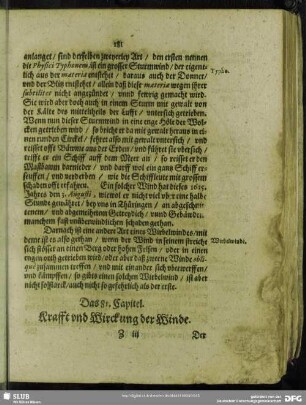 181
anlanget / sind derselben zweyerley Art / den ersten nennen
die Physici Typhonem, ist ein grosser Sturmwind / der eigent-
lich aus der materia entstehet / daraus auch der Donner/
Typho.
vnd der Blitz entstehet / allein daß diese materia wegen ihrer
subtilitet nicht angezündet / vnnd fewrig gemacht wird.
Sie wird aber doch auch in einem Sturm mit gewalt von
der Kälte des mittelnheils der Lufft / vntersich getrieben.
Wenn nun dieser Sturmwind in eine enge Höle der Wol-
cken getrieben wird / so bricht er da mit gewalt heraus in ei-
nem runden Circkel / fehret also mit gewalt vntersich / vnd
reisset offt Bäume aus der Erden / vnd führet sie vbersich/
trifft er ein Schiff auff dem Meer an / so reisset er den
Mastbaum hernieder / vnd darff wol ein ganz Schiff er-
seuffen / vnd verderben / wie die Schiffleute mit grossem
schaden offt erfahren. Ein solcher Wind hat dieses 1615.
Jahres den 3. Augusti, wiewol er nicht viel vber eine halbe
Stunde gewähret / bey vns in Thüringen / an abgeschnit-
tenem / vnd abgemeiheten Getreydich / vnnd Gebäuden
manchem fast vnüberwindlichen schaden gethan.
Darnach ist eine andere Art eines Wirbelwindes / mit
deme ist es also gethan / wenn der Wind in seinem streiche
Wirbelwinde.
sich stösset an einen Berg oder hohen Felsen / oder in einen
engen orth getrieben wird / oder aber daß zweene Winde obli-
què zusammen treffen / vnd mit einander sich vberwerffen/
vnd kämpffen / so gibts einen solchen Wirbelwind / ist aber
nicht so starck / auch nicht so gefehrlich als der erste.
Das 81. Capitel.
Krafft vnd Wirckung der Winde.
Z iii
Der
SLUB
DFG